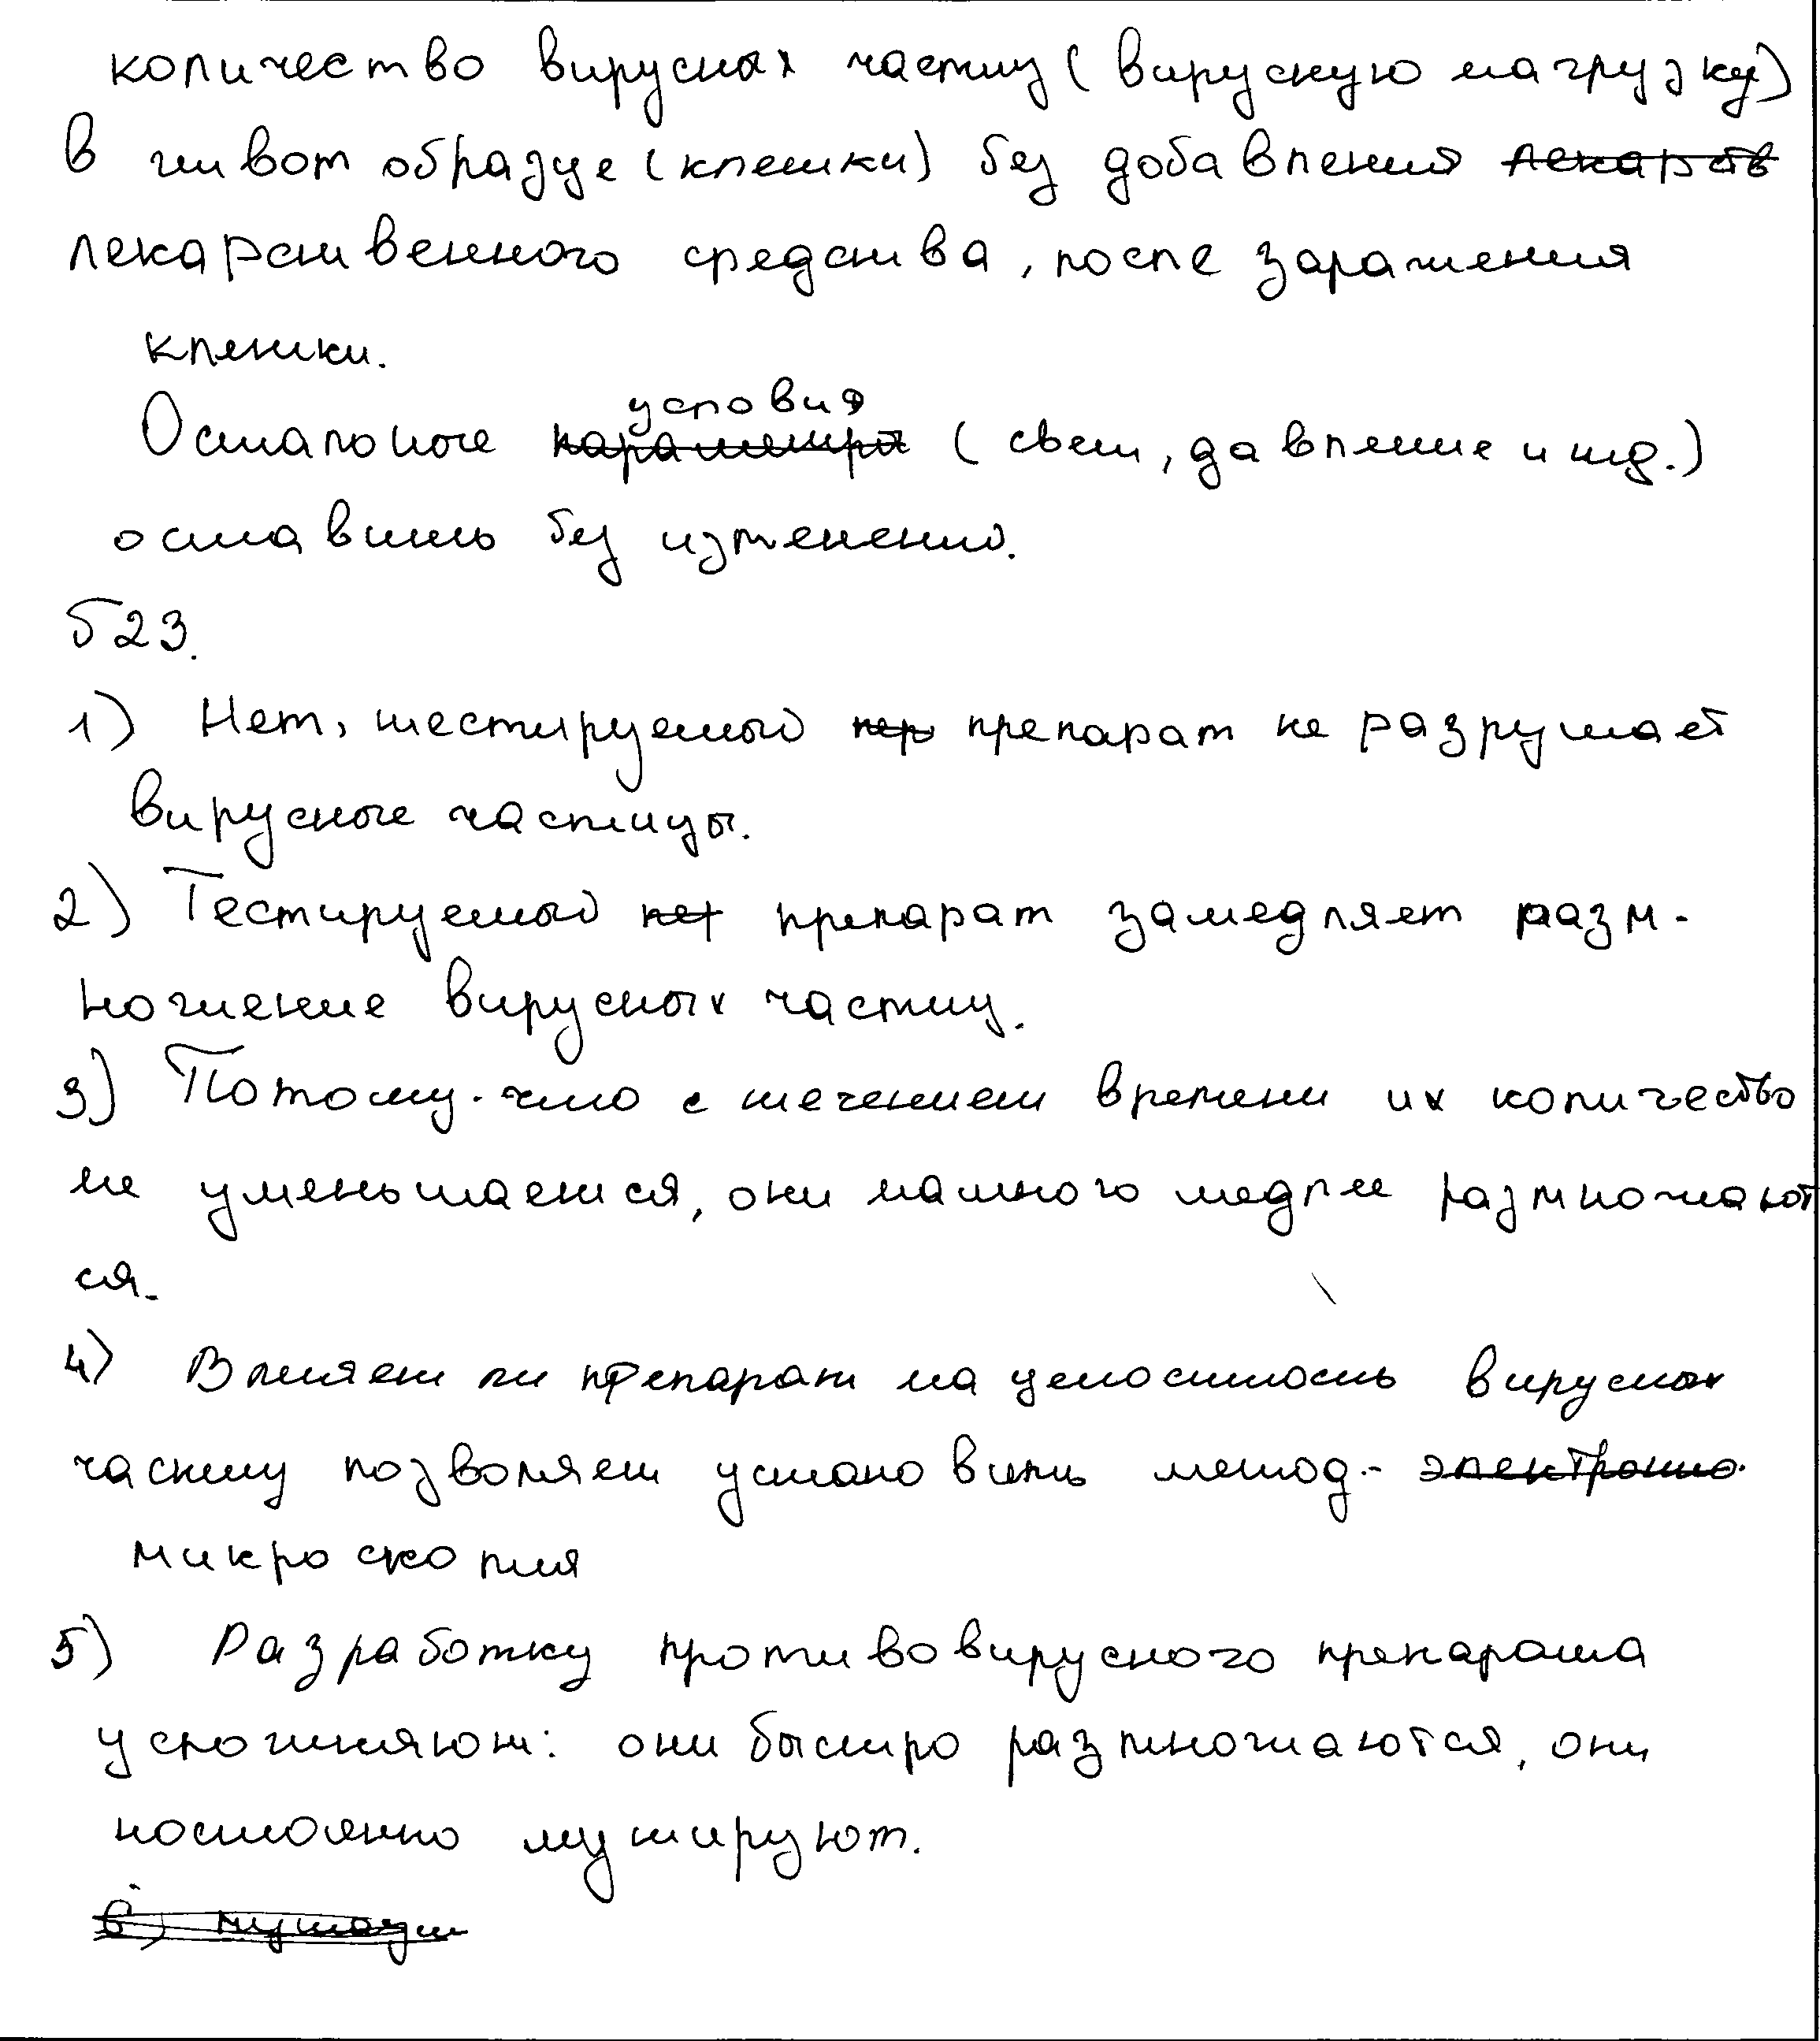 количество вирусных частиц (вирусную нагрузку)
в живом образце (клетки) без добавления лекарств
лекарственного средства, после заражения
клетки.
условия
Остальные параметры (свет, давление и тд.)
оставить без изменений.
523.
1) Нет, тестируемый пер препарат не разрушает
вирусные частицы.
2) Тестируемый пер препарат замедляет разм-
ножение вирусных частиц.
3) Потому-что с течением времени их количество
не уменьшается, они намного медлее размножают
ся.
4) Влияет ли препарат на целостность вирусных
частиц позволяет установить метод - электронно
микроскопия
5) Разработку противовирусного препарата
усложняют: они быстро размножаются, они
постоянно мутируют.
6) мутации